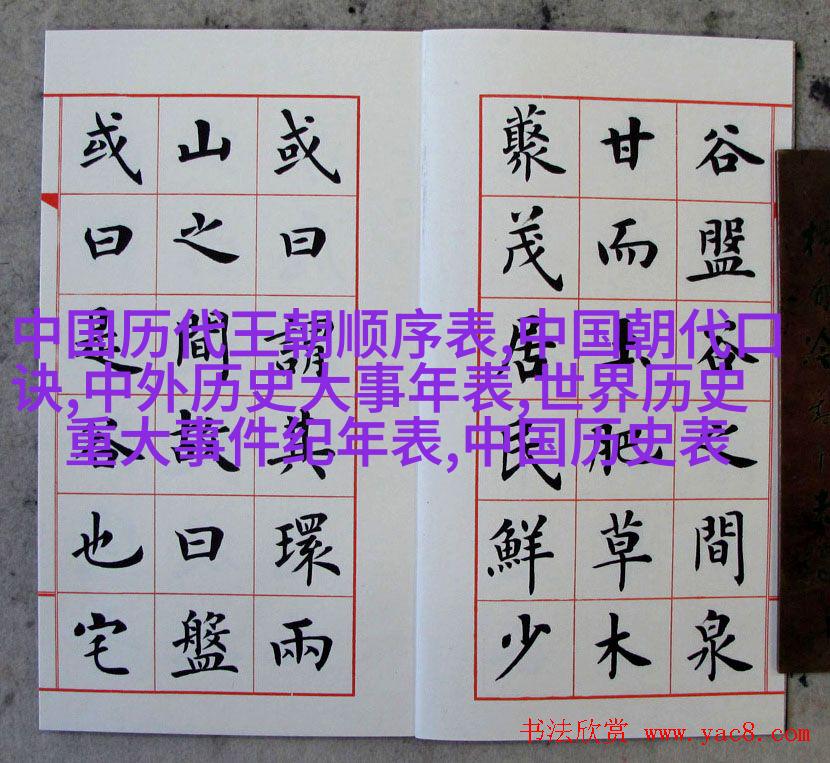 谷盤谷之間泉
甘而土肥草木
藂茂居民鮮少
或曰謂其環兩
山之間故曰盤
或曰是谷也宅
中国历代王朝顺序表,中国朝代口
诀,中外历史大事年表,世界历史
重大事件纪年表,中国历史表
书法欣赏 www.yac8.com